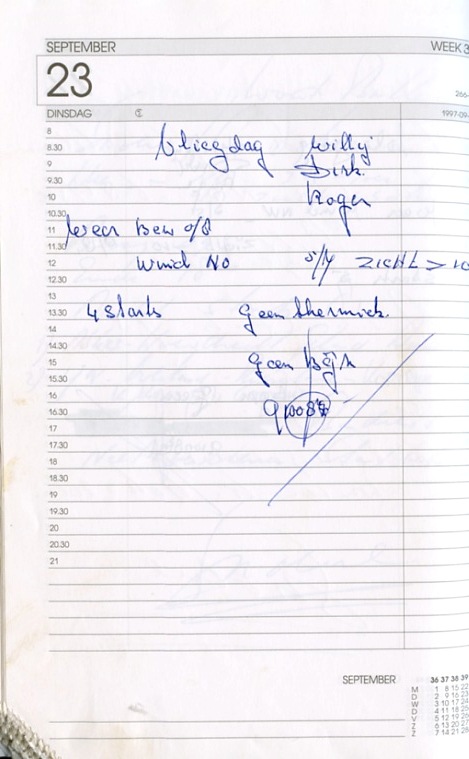 SEPTEMBER WEEK 3
23
266-
DINSDAG 1997-09-
8
8.30 Vliegdag Willy
9 Dirk.
9.30
10 Roger
10.30
11 Weer Bew 0/8
11.30
12 Wind NO 3/4 ZICHT > 10
12.30
13
13.30 4 Starts Geen thermiek.
14
14.30
15 Geen
15.30
16
16.30
17
17.30
18
18.30
19
19.30
20
20.30
21
SEPTEMBER 36 37 38 39
M 1 8 15 22
D 2 9 16 23
W 3 10 17 24
D 4 11 18 25
V 5 12 19 26
Z 6 13 20 27
Z 7 14 21 28